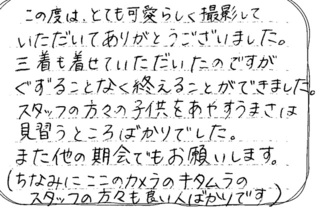 この度は、とても可愛らしく撮影して
いただいてありがとうございました。
三着も着せていただいたのですが
ぐずることなく終えることができました。
スタッフの方々の子供をあやすうまさは
見習うところばかりでした。
また他の期会でもお願いします。
(ちなみにここのカメラのキタムラの
スタッフの方々も良い人ばかりです)